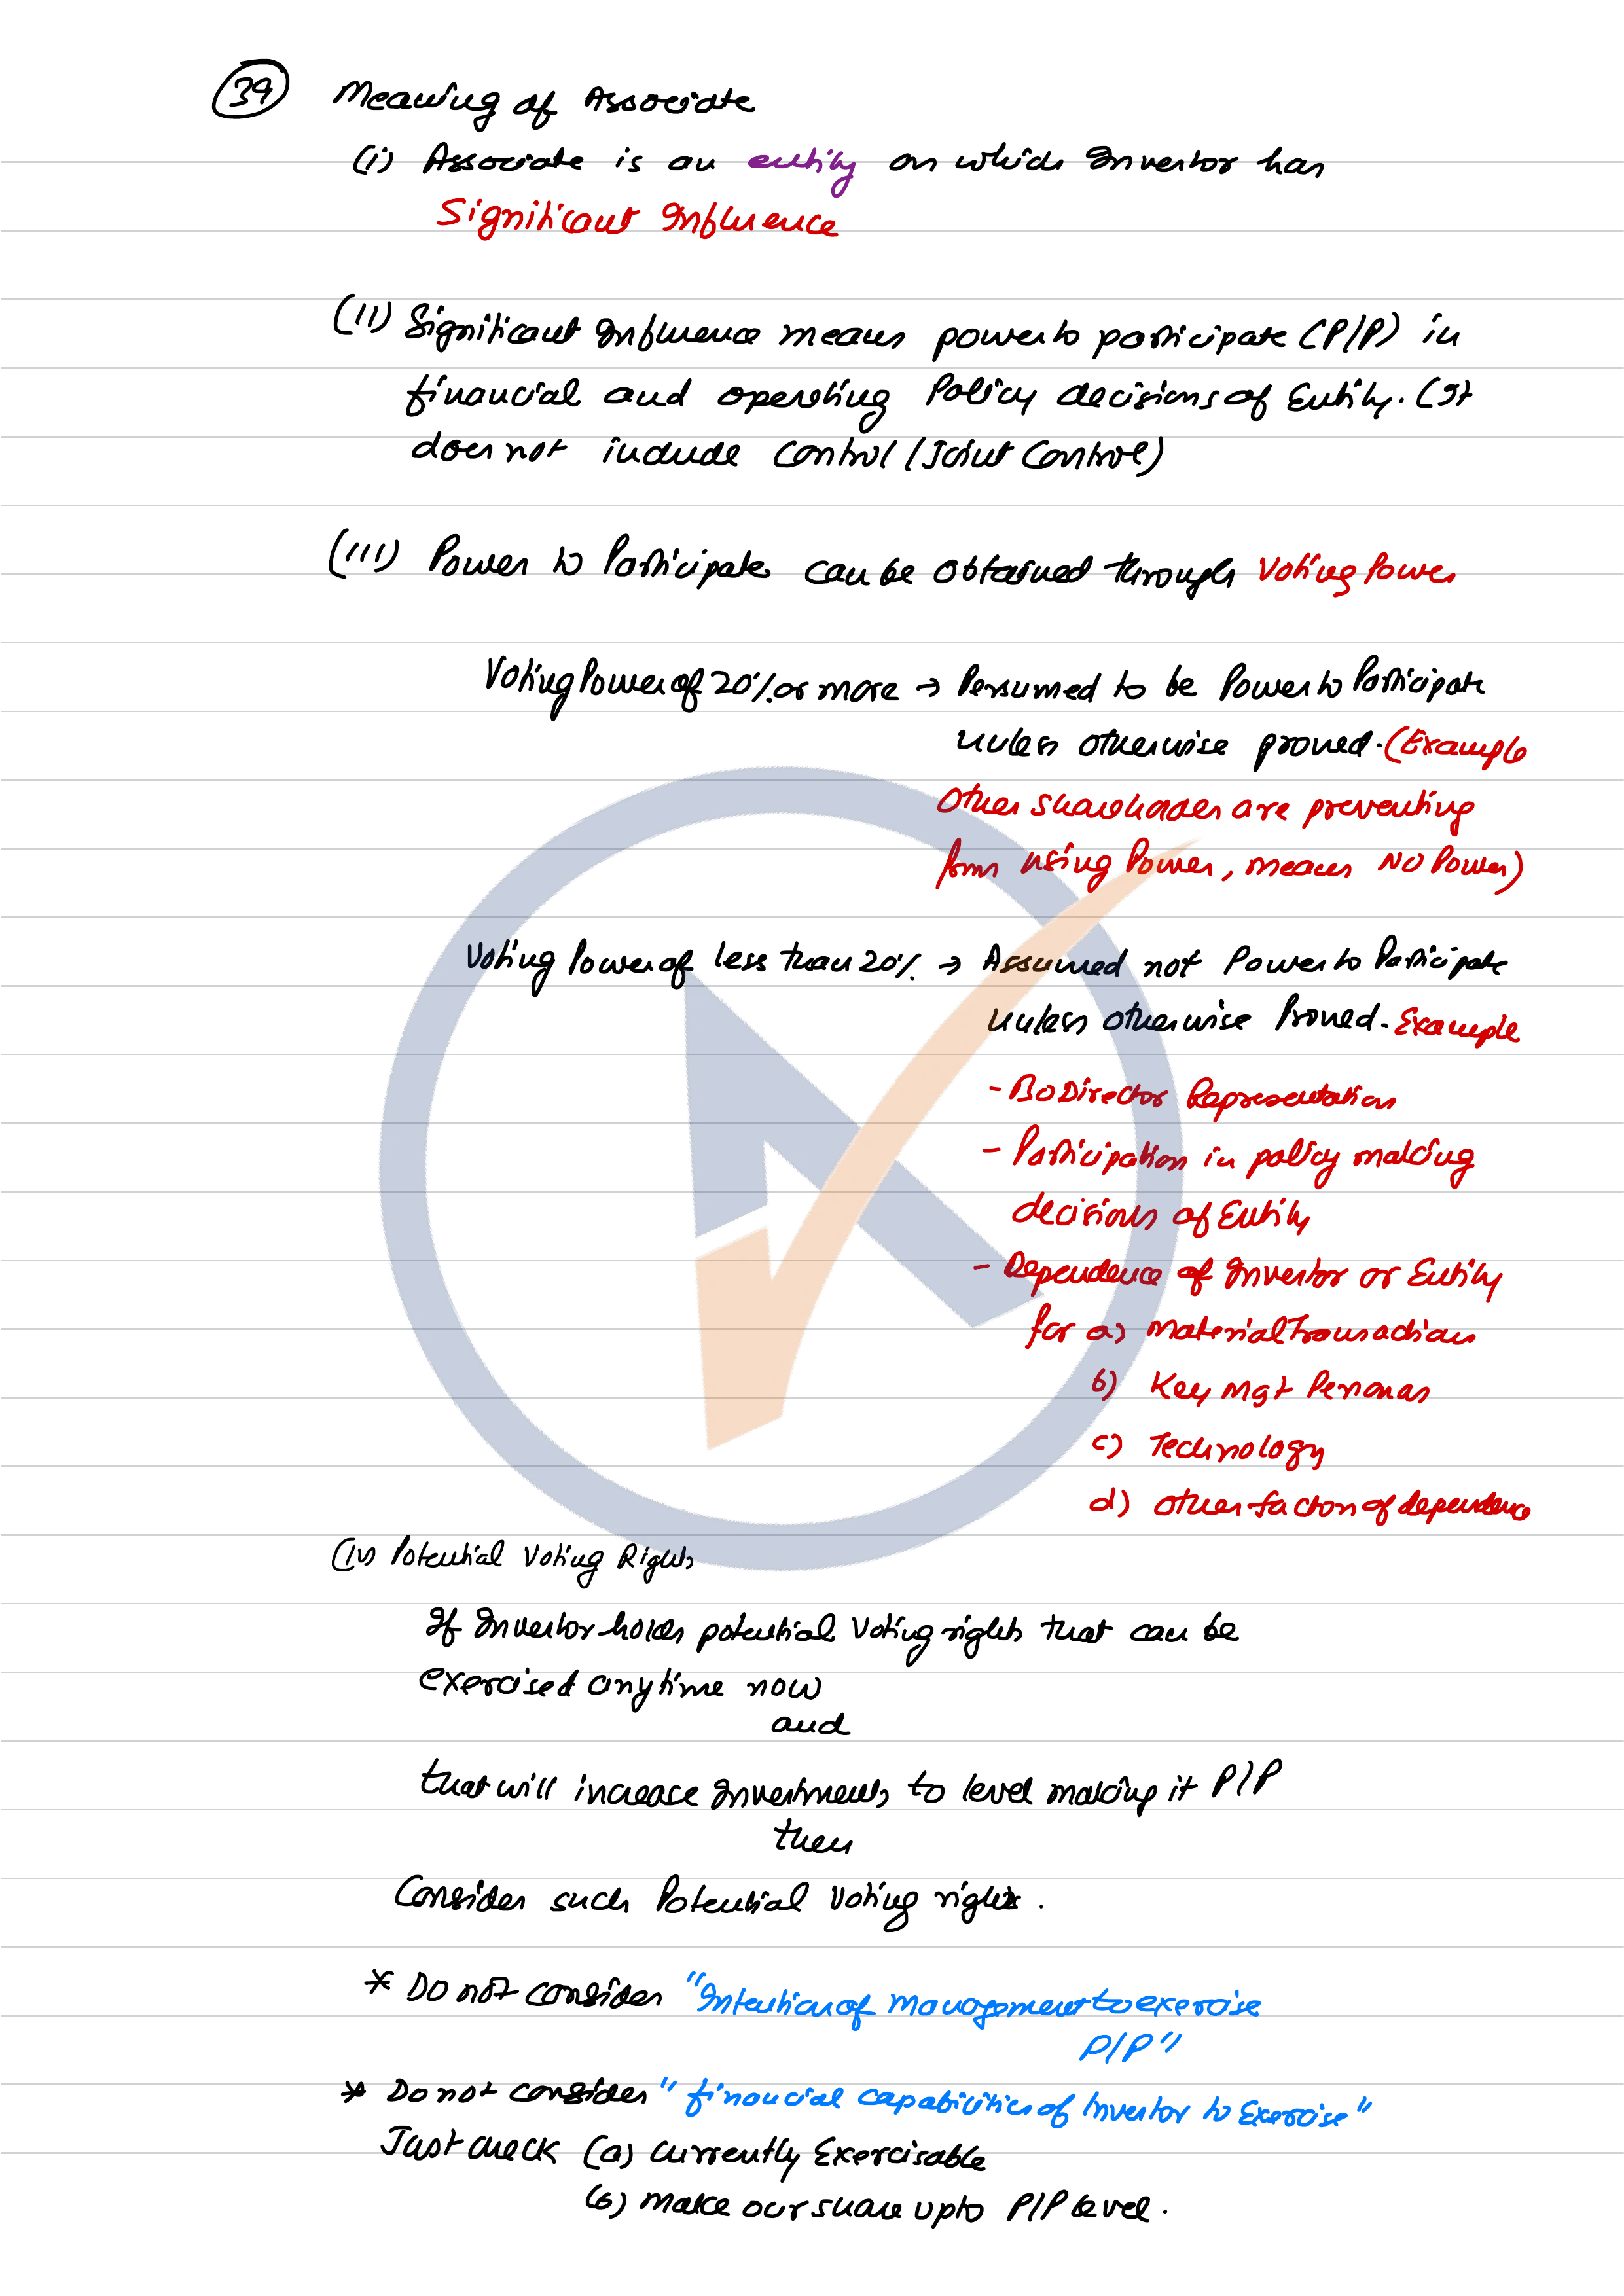 39 Meaning of Associate
(i) Associate is an entity on which Investor has
Significant Influence
(ii) Significant Influence means power to participate (P/P) in
financial and operating Policy decisions of Entity. (It
does not include Control / Joint Control)
(iii) Power to Participate can be obtained through Voting Power
Voting Power of 20% or more → Persumed to be Power to Participate
unless otherwise proved. (Example
Other shareholders are preventing
from using Power, means No Power)
Voting Power of less than 20% → Assumed not Power to Participate
unless otherwise Proved. Example
- BoDirector Representation
- Participation in policy making
decisions of Entity
- Dependence of Investor or Entity
for a) Material Transactions
b) Key Mgt Personas
c) Technology
d) Other factor of dependence
(iv) Potential Voting Rights
If Investor holds potential Voting rights that can be
exercised anytime now
and
that will increase Investments to level making it P/P
then
Consider such Potential Voting rights.
* Do not consider "Intention of management to exercise
P/P"
* Do not consider "financial capabilities of Investor to Exercise"
Just check (a) Currently Exercisable
(b) Make our share upto P/P level.